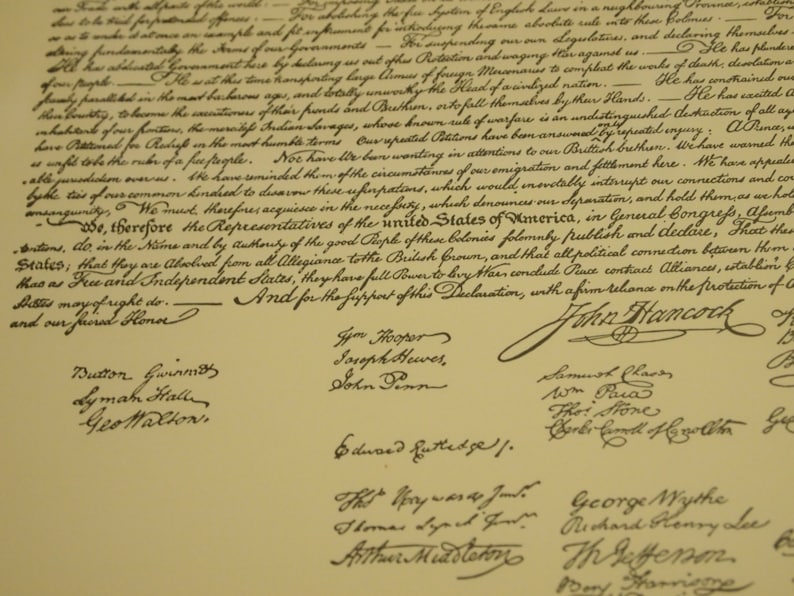 our Trade with all parts of the world: For imposing Taxes on us without
slons to be tried for pretended offences. — For abolishing the free System of English Laws in a neighbouring Province, establish
so as to render it at once an example and fit instrument for introducing the same absolute rule into these Colonies. — For
altering fundamentally the Forms of our Governments — For suspending our own Legislatures, and declaring themselves
He has abdicated Government here by declaring us out of his Protection and waging War against us. — He has plundere
of our people. — He is at this time transporting large Armies of foreign Mercenaries to compleat the works of death, desolation a
paralleled in the most barbarous ages, and totally unworthy the Head of a civilized nation. — He has constrained our
their Country, to become the executioners of their friends and Brethren, or to fall themselves by their Hands. — He has excited
inhabitants of our frontiers, the merciless Indian Savages, whose known rule of warfare is an undistinguished destruction of all ag
have Petitioned for Redress in the most humble terms Our repeated Petitions have been answered by repeated injury. A Prince, w
is unfit to be the ruler of a free people. Nor have We been wanting in attentions to our Brittish brethren. We have warned the
able jurisdiction over us. We have reminded them of the circumstances of our emigration and settlement here. We have appeale
by the ties of our common kindred to disavow these usurpations, which would inevitably interrupt our connections and cor
consanguinity. We must, therefore, acquiesce in the necessity, which denounces our Separation, and hold them, as we hold
We, therefore the Representatives of the united States of America, in General Congress, Assemb
tentions, do, in the Name and by authority of the good People of these Colonies solemnly publish and declare, That these
States; that they are Absolved from all Allegiance to the British Crown, and that all political connection between them
that as Free and Independent States, they have full Power to levy War, conclude Peace contract Alliances, establish C
States may of right do. — And for the support of this Declaration, with a firm reliance on the protection of
and our sacred Honor
Button Gwinnett
Lyman Hall
Geo Walton.
Wm Hooper
Joseph Hewes,
John Penn
Edward Rutledge /.
Thos Heyward Junr.
Thomas Lynch Junr.
Arthur Middleton
John Hancock
Samuel Chase
Wm Paca
Thos. Stone
Charles Carroll of Carrollton
George Wythe
Richard Henry Lee
Th Jefferson
Benj Harrison